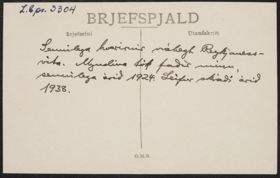 L.b.pr. 3304
BRJEFSPJALD
Bréfsefni
Utanáskrift
Sennilega hverirnir nálægt Reykjanes-
vita. Myndina tók faðir minn,
sennilega árið 1924. Leifur skírði árið
1938.
O.M.S.